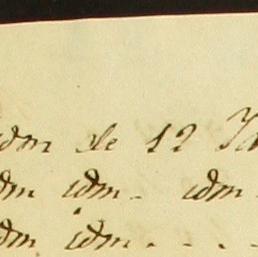 idm de 12
idm idm. idm
idm idm. . . .